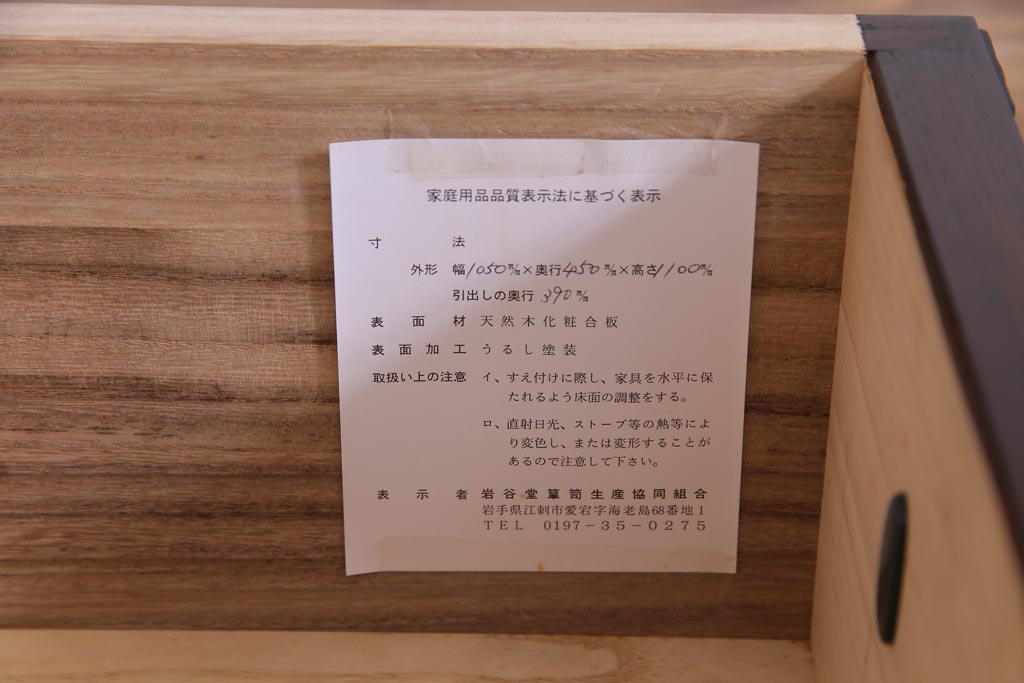 家庭用品品質表示法に基づく表示
寸法
外形 幅1050m/m×奥行450m/m×高さ1100m/m
引出しの奥行 390m/m
表面材 天然木化粧合板
表面加工 うるし塗装
取扱い上の注意 イ、すえ付けに際し、家具を水平に保
たれるよう床面の調整をする。
ロ、直射日光、ストーブ等の熱等によ
り変色し、または変形することが
あるので注意して下さい。
表示者 岩谷堂簞笥生産協同組合
岩手県江刺市愛宕字海老島68番地1
TEL 0197-35-0275